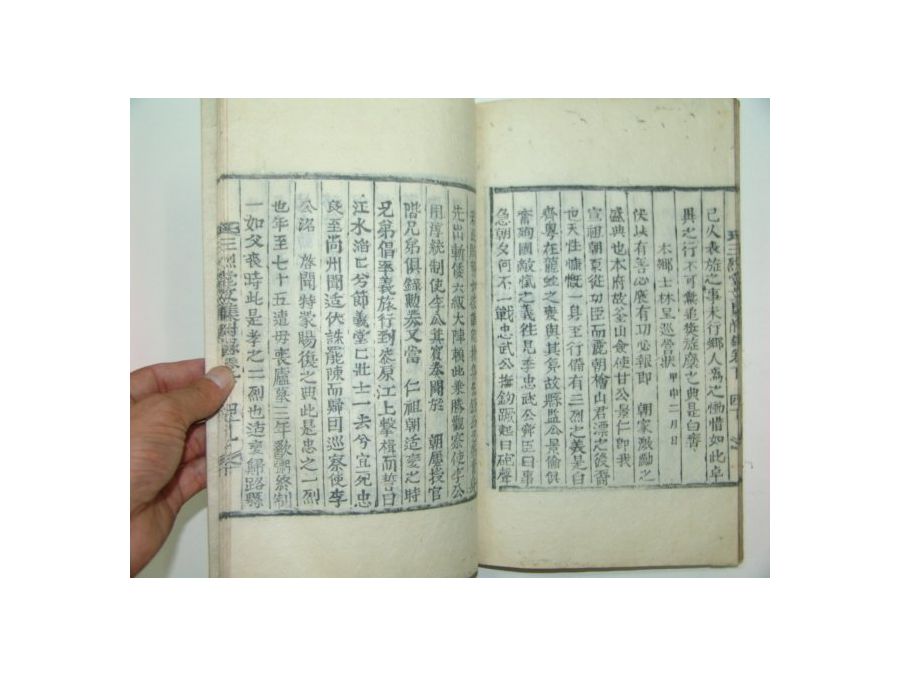 己久表旌之事未行鄉人爲之慟惜如此卓
異之行不可無進旌褒之典是白齊
本鄉士林呈巡營狀 甲申二月日
伏以有善必褒有功必報即 朝家激勵之
盛典也本府故釜山僉使甘公景仁即我
宣祖朝 從功臣而麗朝檜山君 之後裔
也天性慷慨一身至行備有三烈之義是白
齊粤在龍蛇之變與其 故縣監公景倫俱
奮 國敵愾之義往見李忠武公舜臣曰事
急朝夕何不一戰忠武公撫釰 起曰砲聲
先出斬倭六級大陣賴此乗勝觀察使李公
用淳統制使李公 奏聞於 朝 授官
階兄弟俱錄勲券又當 仁祖朝适變之時
兄弟倡率義旅行到 原江上擊楫而誓曰
江水滔已兮節義堂已壯士一去兮宜死忠
良至尚州聞适伏誅罷陳而歸回巡察使李
公 啓聞特蒙賜復之典此是忠之一烈
也年至七十五遭母喪廬墓三年歠粥終制
一如父喪時此是孝之二烈也适變歸路縣
三烈堂文集附錄卷